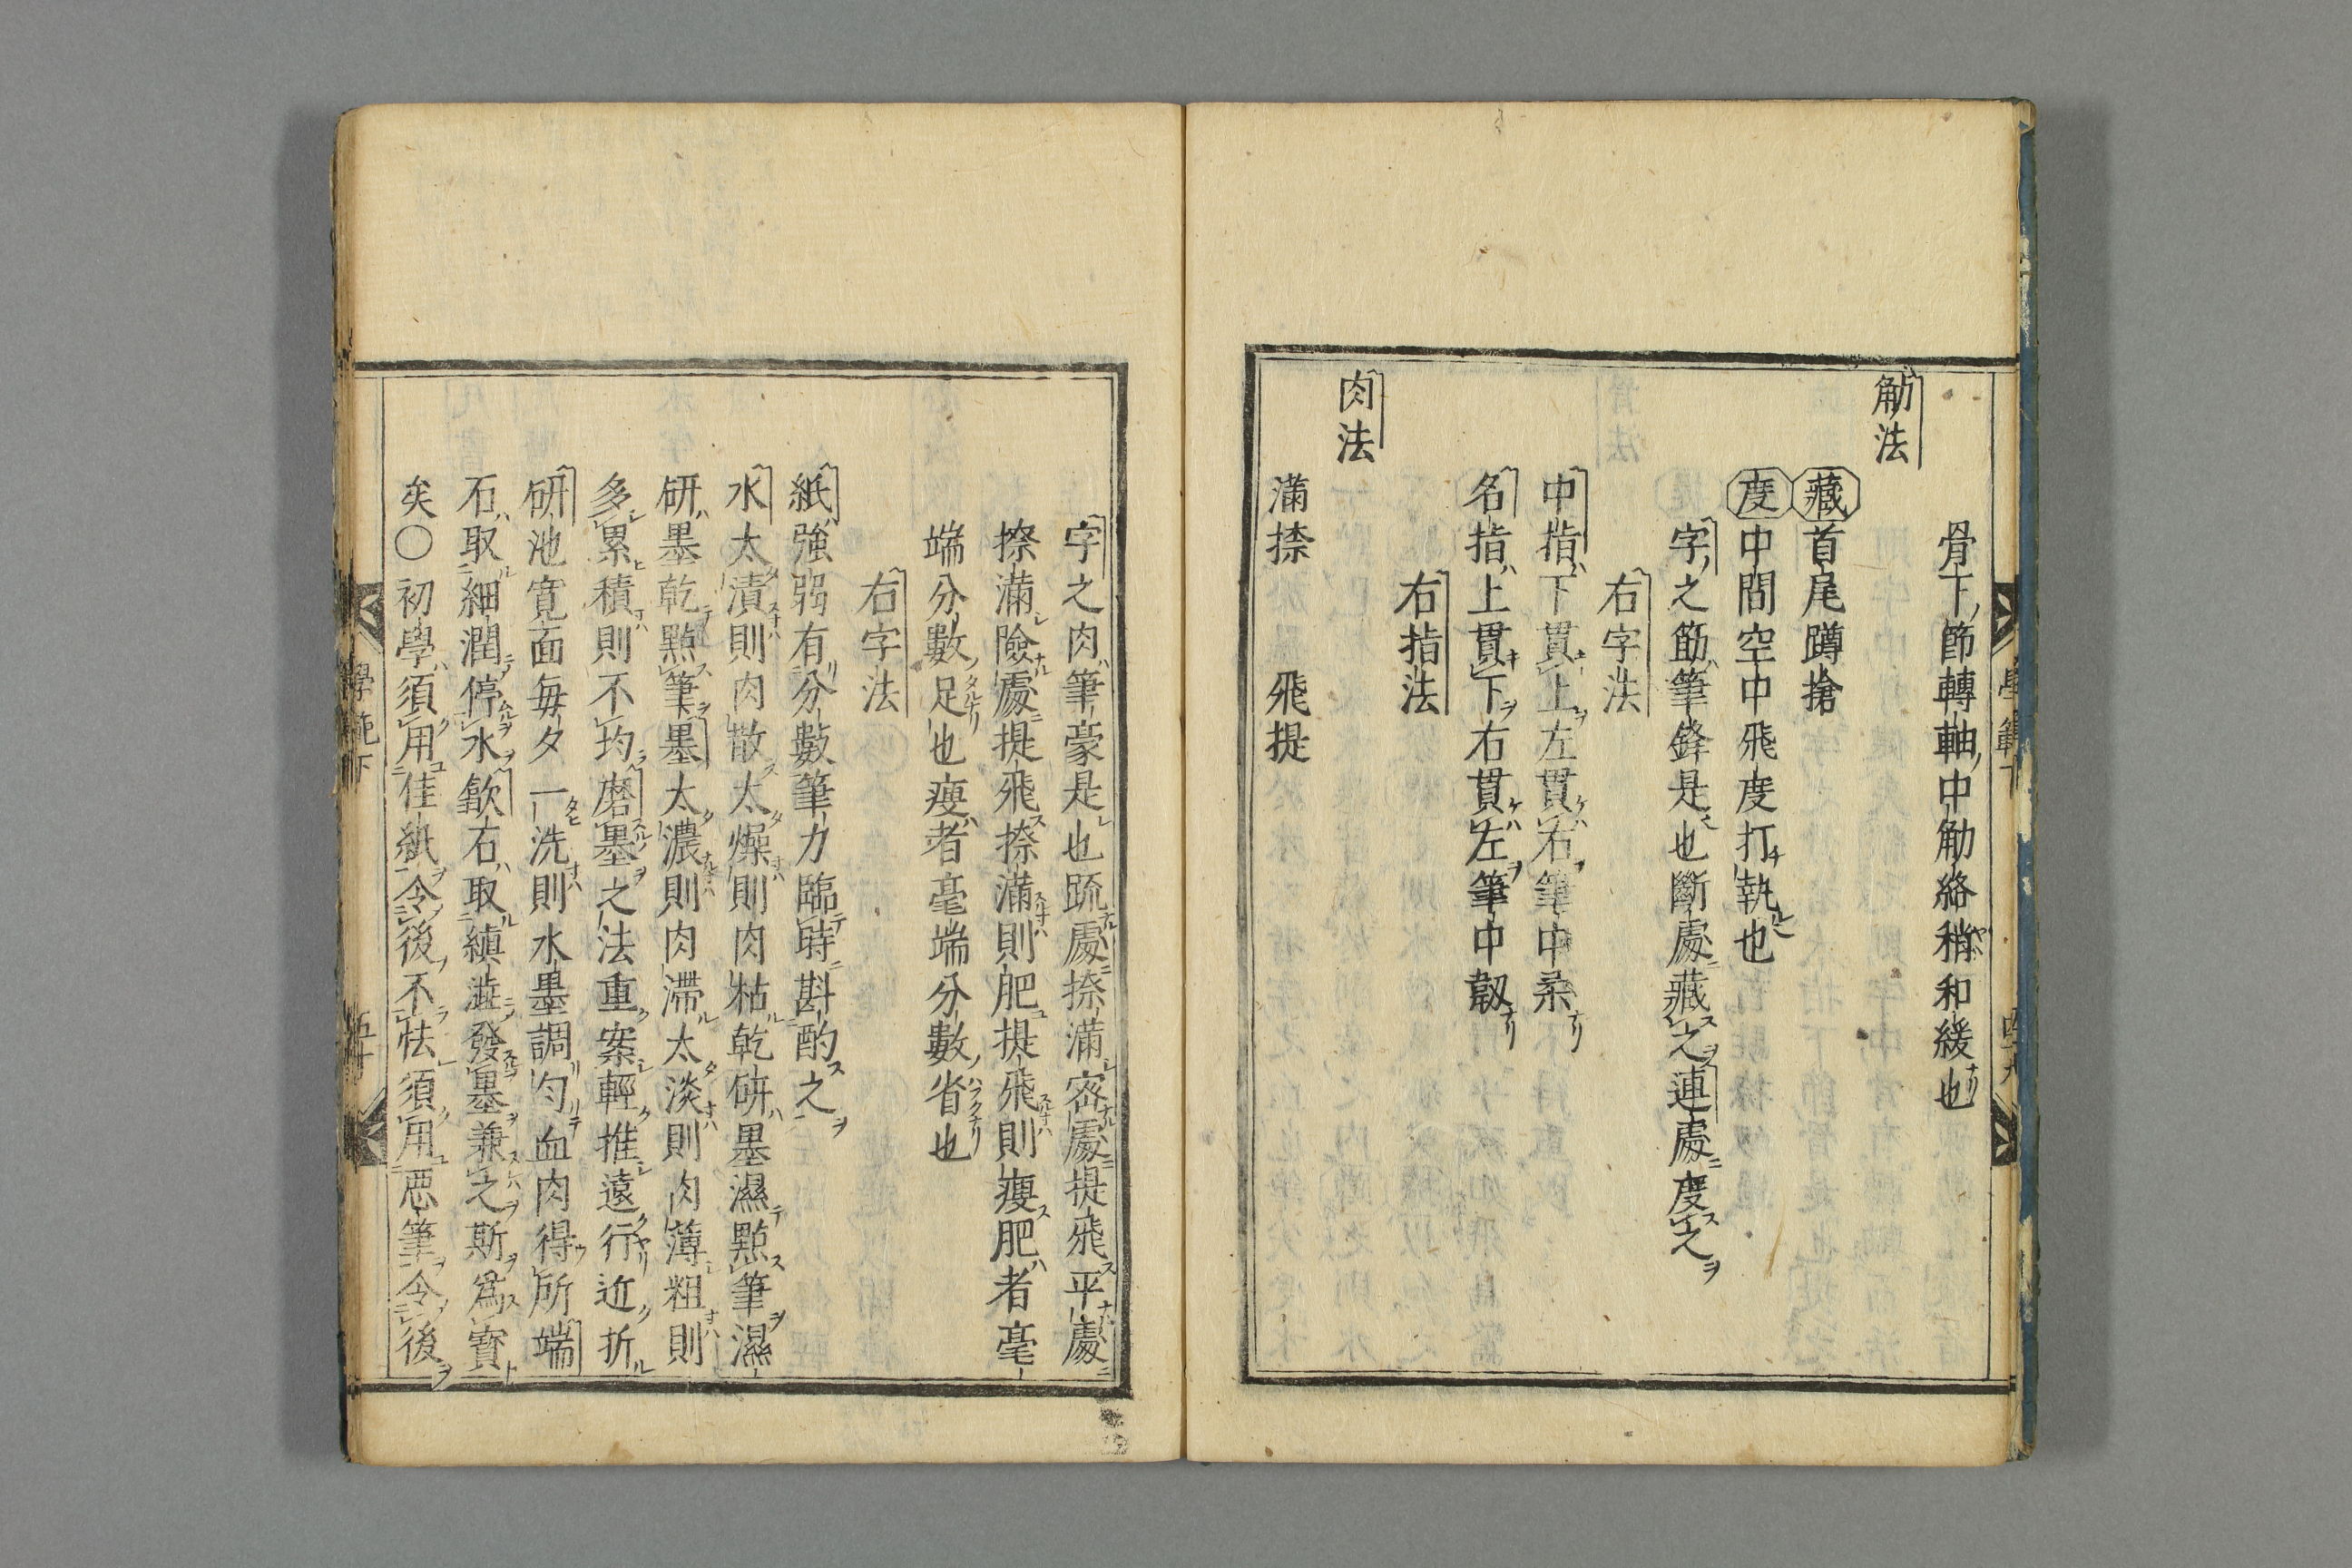 骨下節轉軸中觔絡稍和緩也
觔法
藏首尾蹲搶
度中間空中飛度打執也
字之筋筆鋒是也斷處藏之連處度之
右字法
中指下貫上左貫右筆中柔
名指上貫下右貫左筆中韌
右指法
肉法
滿捺 飛提
字之肉筆毫是也䟽處捺滿宻處提飛平處
捺滿險處提飛捺滿則肥提飛則瘦肥者毫
端分數足也瘦者毫端分數省也
右字法
紙強弱有分數筆力臨時斟酌之
水太漬則肉散太燥則肉枯乾研墨濕㸃筆濕
研墨乾㸃筆墨太濃則肉滯太淡則肉薄粗則
多累積則不均磨墨之法重案輕推遠行近折
研池寛面每夕一洗則水墨調匀血肉得所端
石取細潤停水歙石取縝澁發墨兼之斯爲寳
矣○初學須用佳紙令後不怯須用惡筆令後
學範下
五十